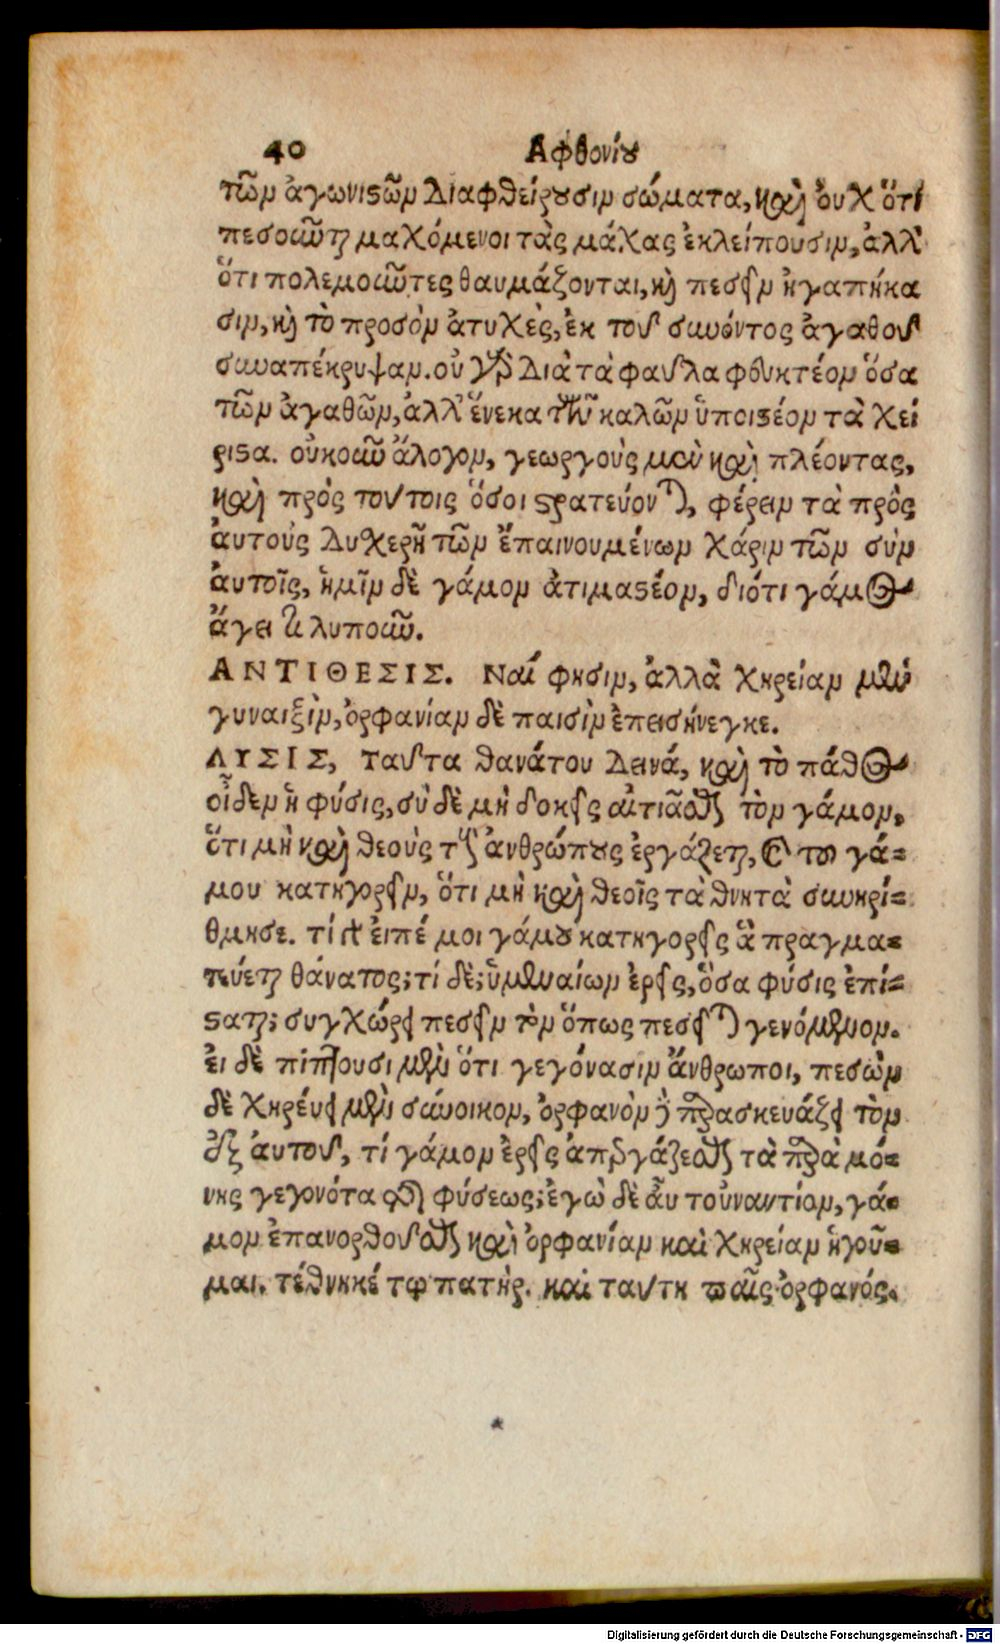 40 Αφθονίου
τῶν ἀγωνιστῶν διαφθείρουσιν σώματα, καὶ ὀυχ ὅτι
πεσοῦνται μαχόμενοι τὰς μάχας ἐκλείπουσιν, ἀλλ'
ὅτι πολεμοῦντες θαυμάζονται, καὶ πεσεῖν ἠγαπήκα
σιν, καὶ τὸ προσὸν ἀτυχὲς, ἐκ τοῦ συνόντος ἀγαθοῦ
συναπέκρυψαν. οὐ γὰρ διὰ τὰ φαῦλα φευκτέον ὅσα
τῶν ἀγαθῶν, ἀλλ' ἕνεκα τῶν καλῶν ὑποιστέον τὰ χεί
ριστα. οὐκοῦν ἄλογον, γεωργοὺς μὲν καὶ πλέοντας,
καὶ πρὸς τούτοις ὅσοι στρατεύονται, φέρειν τὰ πρὸς
ἀυτοὺς δυχερῆ τῶν ἐπαινουμένων χάριν τῶν σὺν
ἀυτοῖς, ἡμῖν δὲ γάμον ἀτιμαστέον, διότι γάμος
ἄγει τι λυποῦν.
ΑΝΤΙΘΕΣΙΣ. Ναί φησιν, ἀλλὰ χηρείαν μὲν
γυναιξὶν, ὀρφανίαν δὲ παισὶν ἐπεισήνεγκε.
ΛΥΣΙΣ, Ταῦτα θανάτου δεινά, καὶ τὸ πάθος
οἶδεν ἡ φύσις, σὺ δὲ μὴ δοκεῖς αἰτιᾶσθαι τὸν γάμον,
ὅτι μὴ καὶ θεοὺς τοὺς ἀνθρώπους ἐργάζεται, καὶ τοῦ γά-
μου κατηγορεῖν, ὅτι μὴ καὶ θεοῖς τὰ θνητὰ συνηρί-
θμησε. τί γὰρ ἐιπέ μοι γάμου κατηγορεῖς ἃ πραγμα-
τεύεται θάνατος; τί δὲ; ὑμεναίων ἐρεῖς, ὅσα φύσις ἐπί-
σταται; συγχώρει πεσεῖν τὸν ὅπως πεσεῖται γενόμενον.
ἐι δὲ πίπτουσι μὲν ὅτι γεγόνασιν ἄνθρωποι, πεσὼν
δὲ χηρέυει μὲν σύνοικον, ὀρφανὸν δὲ παρασκευάζει τὸν
ἐξ ἀυτοῦ, τί γάμον ἐρεῖς ἀπεργάζεσθαι τὰ παρὰ μό-
νης γεγονότα τῆς φύσεως; ἐγὼ δὲ ἂυ τοὐναντίον, γά-
μον ἐπανορθοῦσθαι καὶ ὀρφανίαν καὶ χηρείαν ἡγοῦ-
μαι. τέθνηκέ τῳ πατήρ. καὶ ταύτη παῖς ὀρφανός.
Digitalisierung gefördert durch die Deutsche Forschungsgemeinschaft - DFG